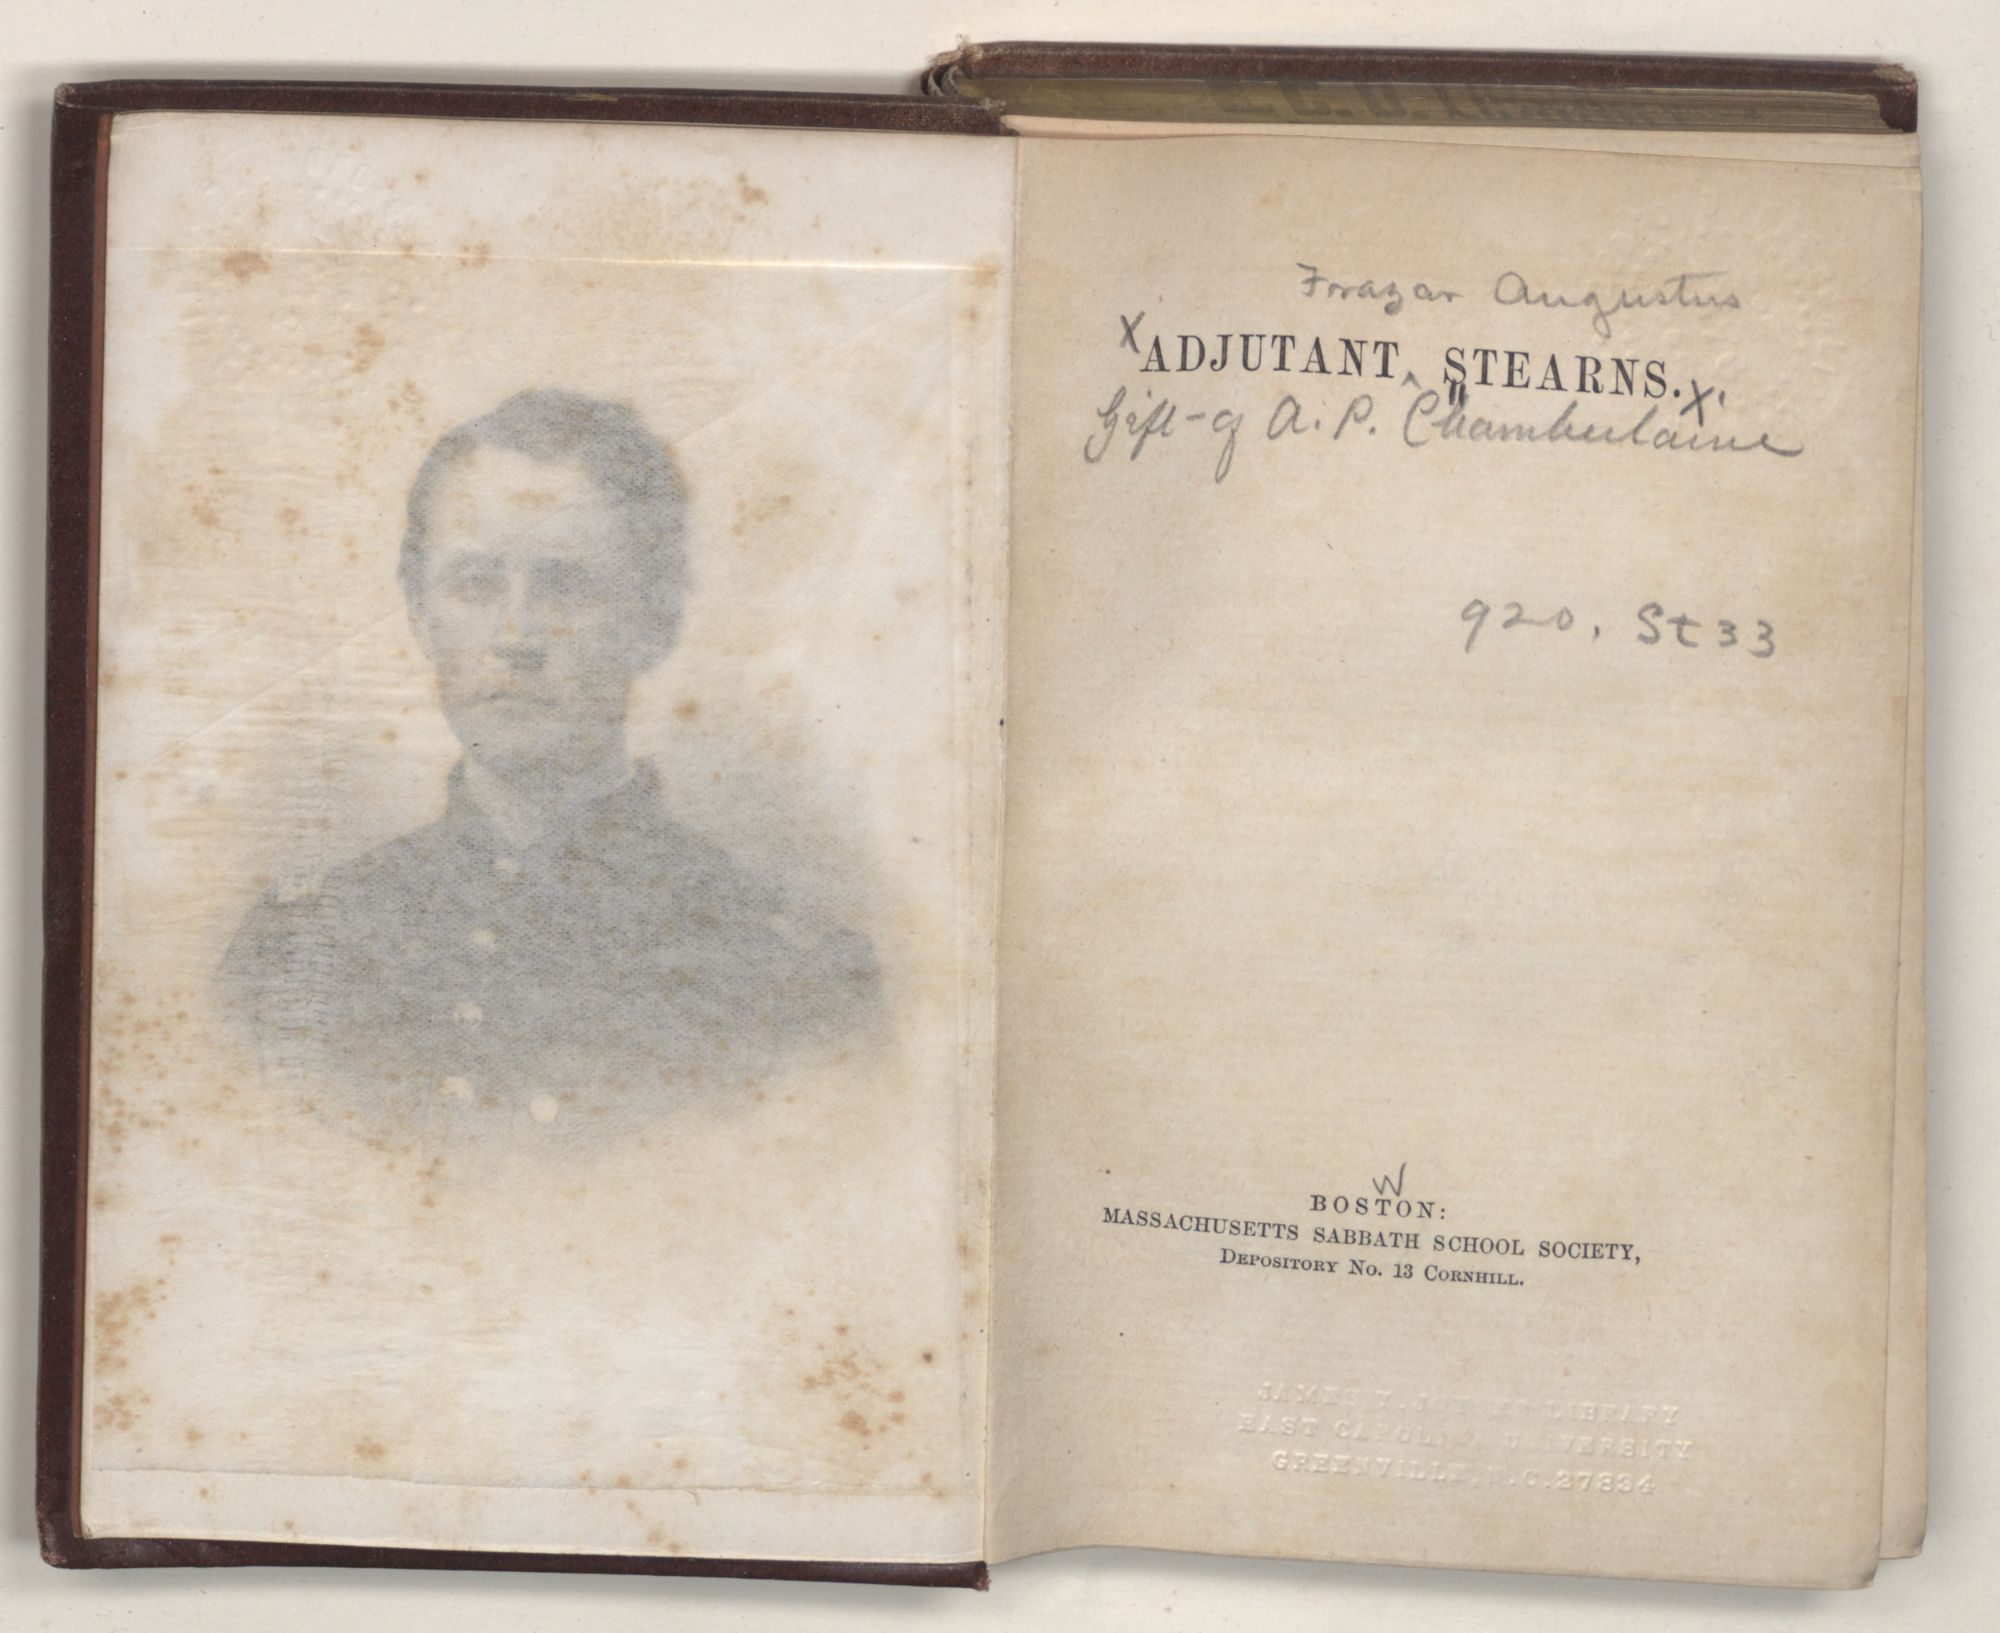 Frazar Augustus
X ADJUTANT ^ STEARNS. X.
Gift of A. P. Chamberlaine
920. St33
W
BOSTON:
MASSACHUSETTS SABBATH SCHOOL SOCIETY,
DEPOSITORY No. 13 CORNHILL.
JAMES Y. JOYNER LIBRARY
EAST CAROLINA UNIVERSITY
GREENVILLE, N.C. 27834